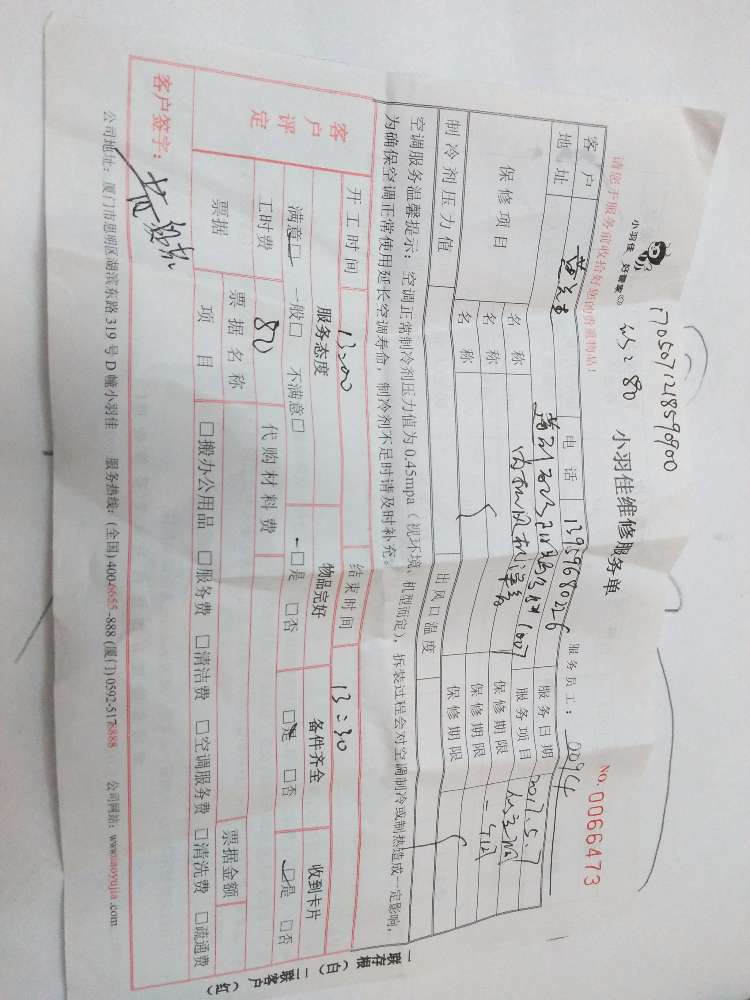 170507121859900
小羽佳 好管家(R)
小羽佳维修服务单
NO. 0066473
请您于服务前收拾好您的贵重物品！
服务员工： 0094
客户 电话 13959680226 服务日期 2017.5.7
地址 服务项目
保修项目 名称 保修期限
名称 保修期限
名称 保修期限
制冷剂压力值 出风口温度
空调服务温馨提示：空调正常制冷剂压力值为0.45mpa（视环境、机型而定），拆装过程会对空调制冷或制热造成一定影响，
为确保空调正常使用延长空调寿命，制冷剂不足时请及时补充。
开工时间 13:00 结束时间 13:30
客户评定
服务态度 物品完好 备件齐全 收到卡片
满意□ 一般□ 不满意□ □是 □否 □是 □否 □是 □否
工时费 80 代购材料费
票据 票据名称 票据金额
项目 □搬办公用品 □服务费 □清洁费 □空调服务费 □清洗费 □疏通费
客户签字：
公司地址：厦门市思明区湖滨东路319号D幢小羽佳 服务热线：(全国) 400-6655-888 (厦门) 0592-5178888 公司网站：www.xiaoyujia.com
一联存根（白） 二联客户（红）